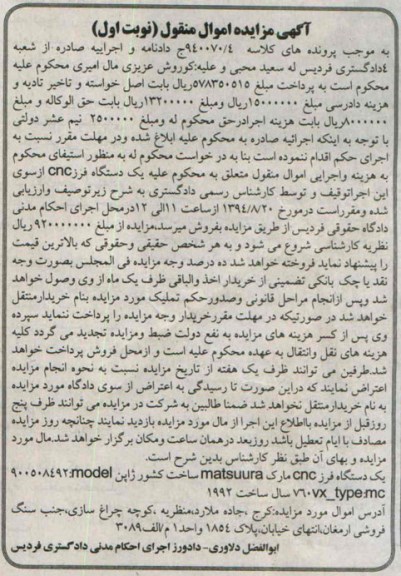 آگهی مزایده اموال منقول (نوبت اول)
به موجب پرونده های کلاسه ۹۴۰۰۷۰/۴ج دادنامه و اجراییه صادره از شعبه
۴دادگستری فردیس له سعید محبی و علیه:کوروش عزیزی مال امیری محکوم علیه
محکوم است به پرداخت مبلغ ۵۷۸۳۵۰۵۱۵ریال بابت اصل خواسته و تاخیر تادیه و
هزینه دادرسی مبلغ ۱۵۰۰۰۰۰۰ریال ومبلغ ۱۳۲۰۰۰۰۰ریال بابت حق الوکاله و مبلغ
۸۰۰۰۰۰۰ریال بابت هزینه اجرادرحق محکوم له ومبلغ ۲۵۰۰۰۰۰ نیم عشر دولتی
با توجه به اینکه اجرائیه صادره به محکوم علیه ابلاغ شده ودر مهلت مقرر نسبت به
اجرای حکم اقدام ننموده است بنا به در خواست محکوم له به منظور استیفای محکوم
به هزینه واجرایی اموال منقول متعلق به محکوم علیه یک دستگاه فرزcnc ازسوی
این اجراتوقیف و توسط کارشناس رسمی دادگستری به شرح زیرتوصیف وارزیابی
شده ومقرراست درمورخ ۱۳۹۴/۸/۲۰ ازساعت ۱۱الی ۱۲درمحل اجرای احکام مدنی
دادگاه حقوقی فردیس از طریق مزایده بفروش میرسد.مزایده از مبلغ ۹۲۰۰۰۰۰۰۰ ریال
نظریه کارشناسی شروع می شود و به هر شخص حقیقی وحقوقی که بالاترین قیمت
را پیشنهاد نماید فروخته خواهد شد ده درصد وجه مزایده فی المجلس بصورت وجه
نقد یا چک بانکی تضمینی از خریدار اخذ والباقی ظرف یک ماه از وی وصول خواهد
شد وپس ازانجام مراحل قانونی وصدورحکم تملیک مورد مزایده بنام خریدارمنتقل
خواهد شد در صورتیکه در مهلت مقررخریدار وجه مزایده را پرداخت ننماید سپرده
وی پس از کسر هزینه های مزایده به نفع دولت ضبط ومزایده تجدید می گردد کلیه
هزینه های نقل وانتقال به عهده محکوم علیه است و ازمحل فروش پرداخت خواهد
شد.طرفین می توانند ظرف یک هفته از تاریخ مزایده نسبت به نحوه انجام مزایده
اعتراض نمایند که دراین صورت تا رسیدگی به اعتراض از سوی دادگاه مورد مزایده
به نام خریدارمنتقل نخواهد شد ضمنا طالبین به شرکت در مزایده می توانند ظرف پنج
روزقبل از مزایده بااطلاع این اجرا از مال مورد مزایده بازدید نمایند چنانچه روز مزایده
مصادف با ایام تعطیل باشد روزبعد درهمان ساعت ومکان برگزار خواهد شد.مال مورد
مزایده و بهای آن طبق نظر کارشناس بدین شرح است.
یک دستگاه فرز cnc مارک matsuura ساخت کشور ژاپن model:۹۰۰۵۰۸۴۹۲
۷۶۰vx_type:mc سال ساخت ۱۹۹۲
آدرس اموال مورد مزایده:کرج ،جاده ملارد،منظریه ،کوچه چراغ سازی،جنب سنگ
فروشی ارمغان،انتهای خیابان،پلاک ۱۸۵۴ واحد۱ م/الف۳۰۸۹
ابوالفضل دلاوری- دادورز اجرای احکام مدنی دادگستری فردیس